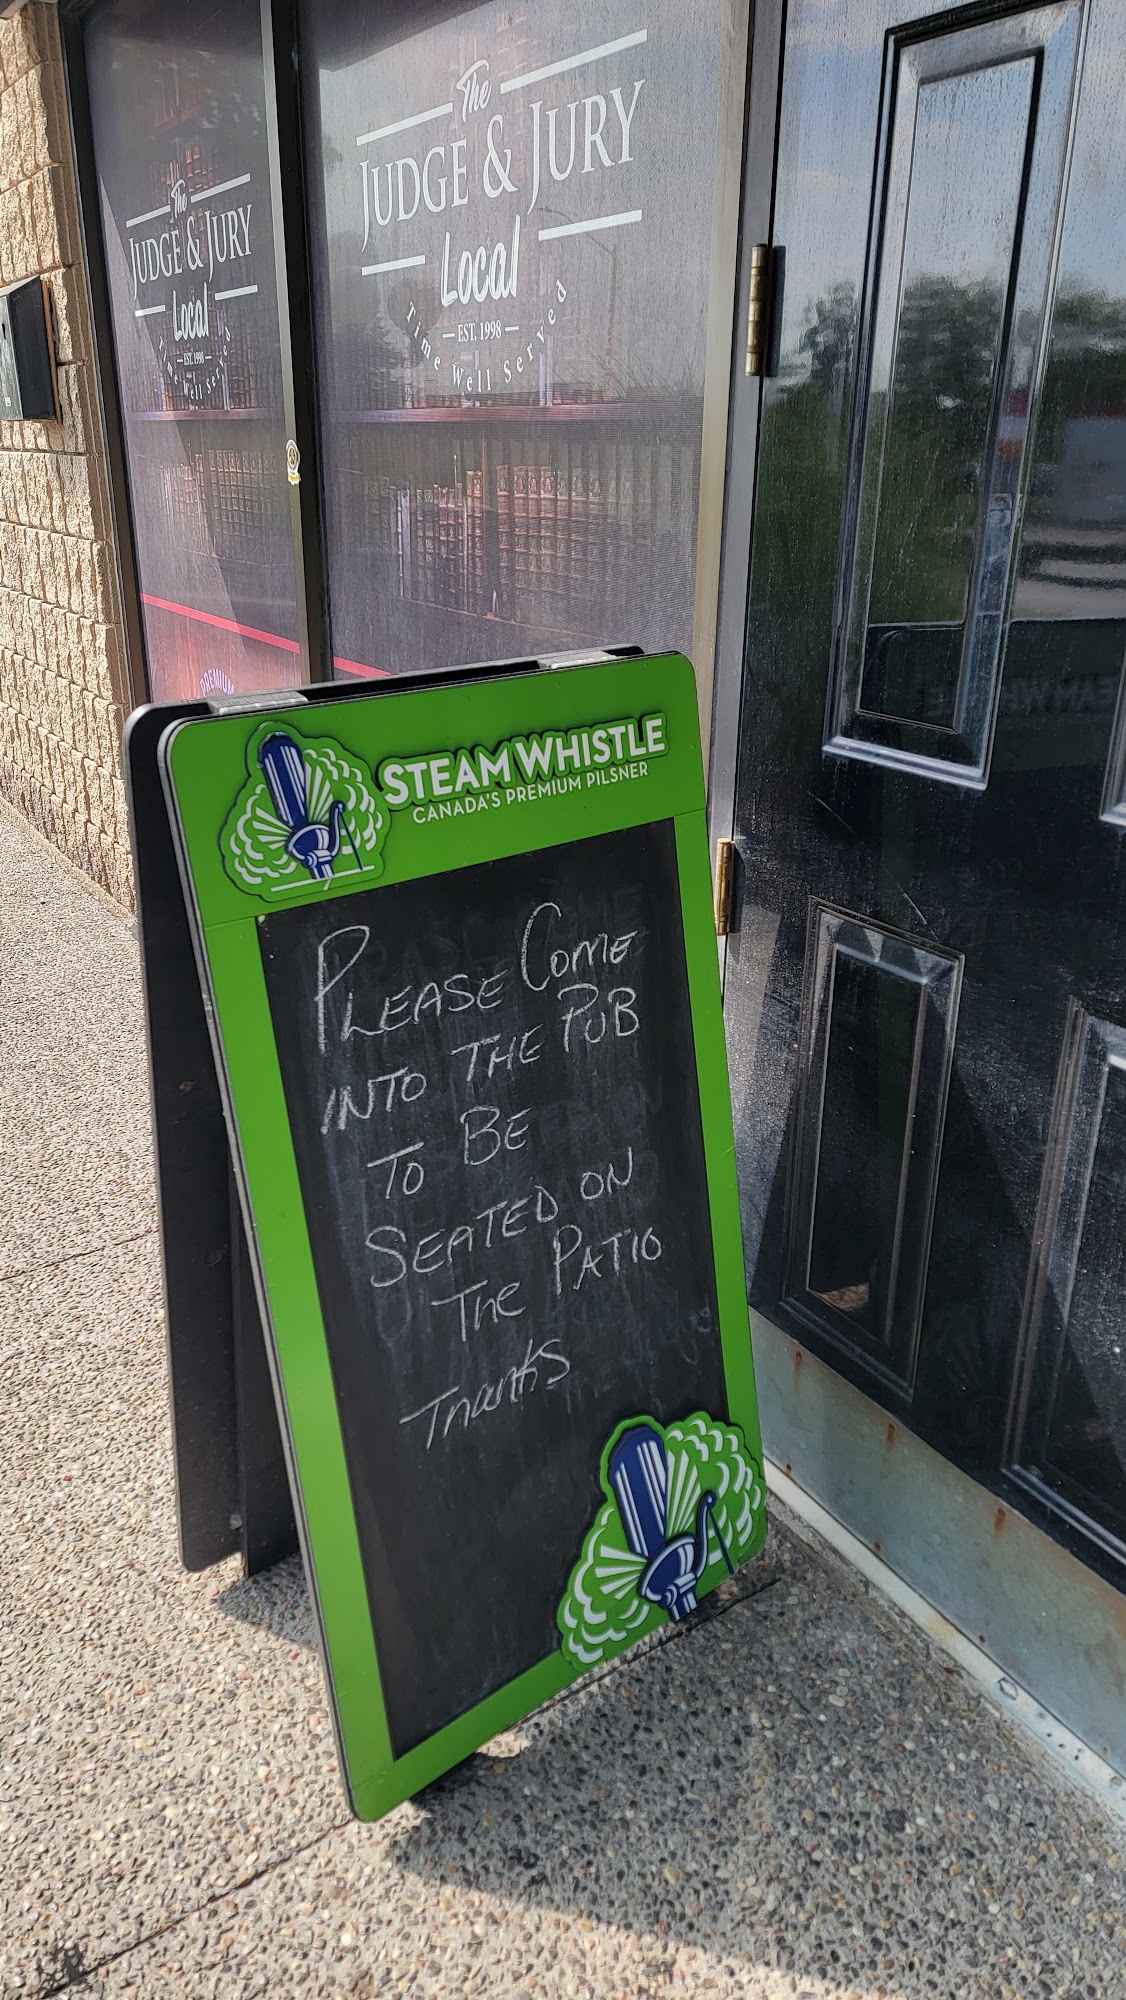 The
JUDGE & JURY
Local
EST. 1998
Time Well Served
The
JUDGE & JURY
Local
EST. 1998
Time Well Served
PREMIUM
STEAM WHISTLE
CANADA'S PREMIUM PILSNER
PLEASE COME
INTO THE PUB
TO BE
SEATED ON
The PATIO
Thanks